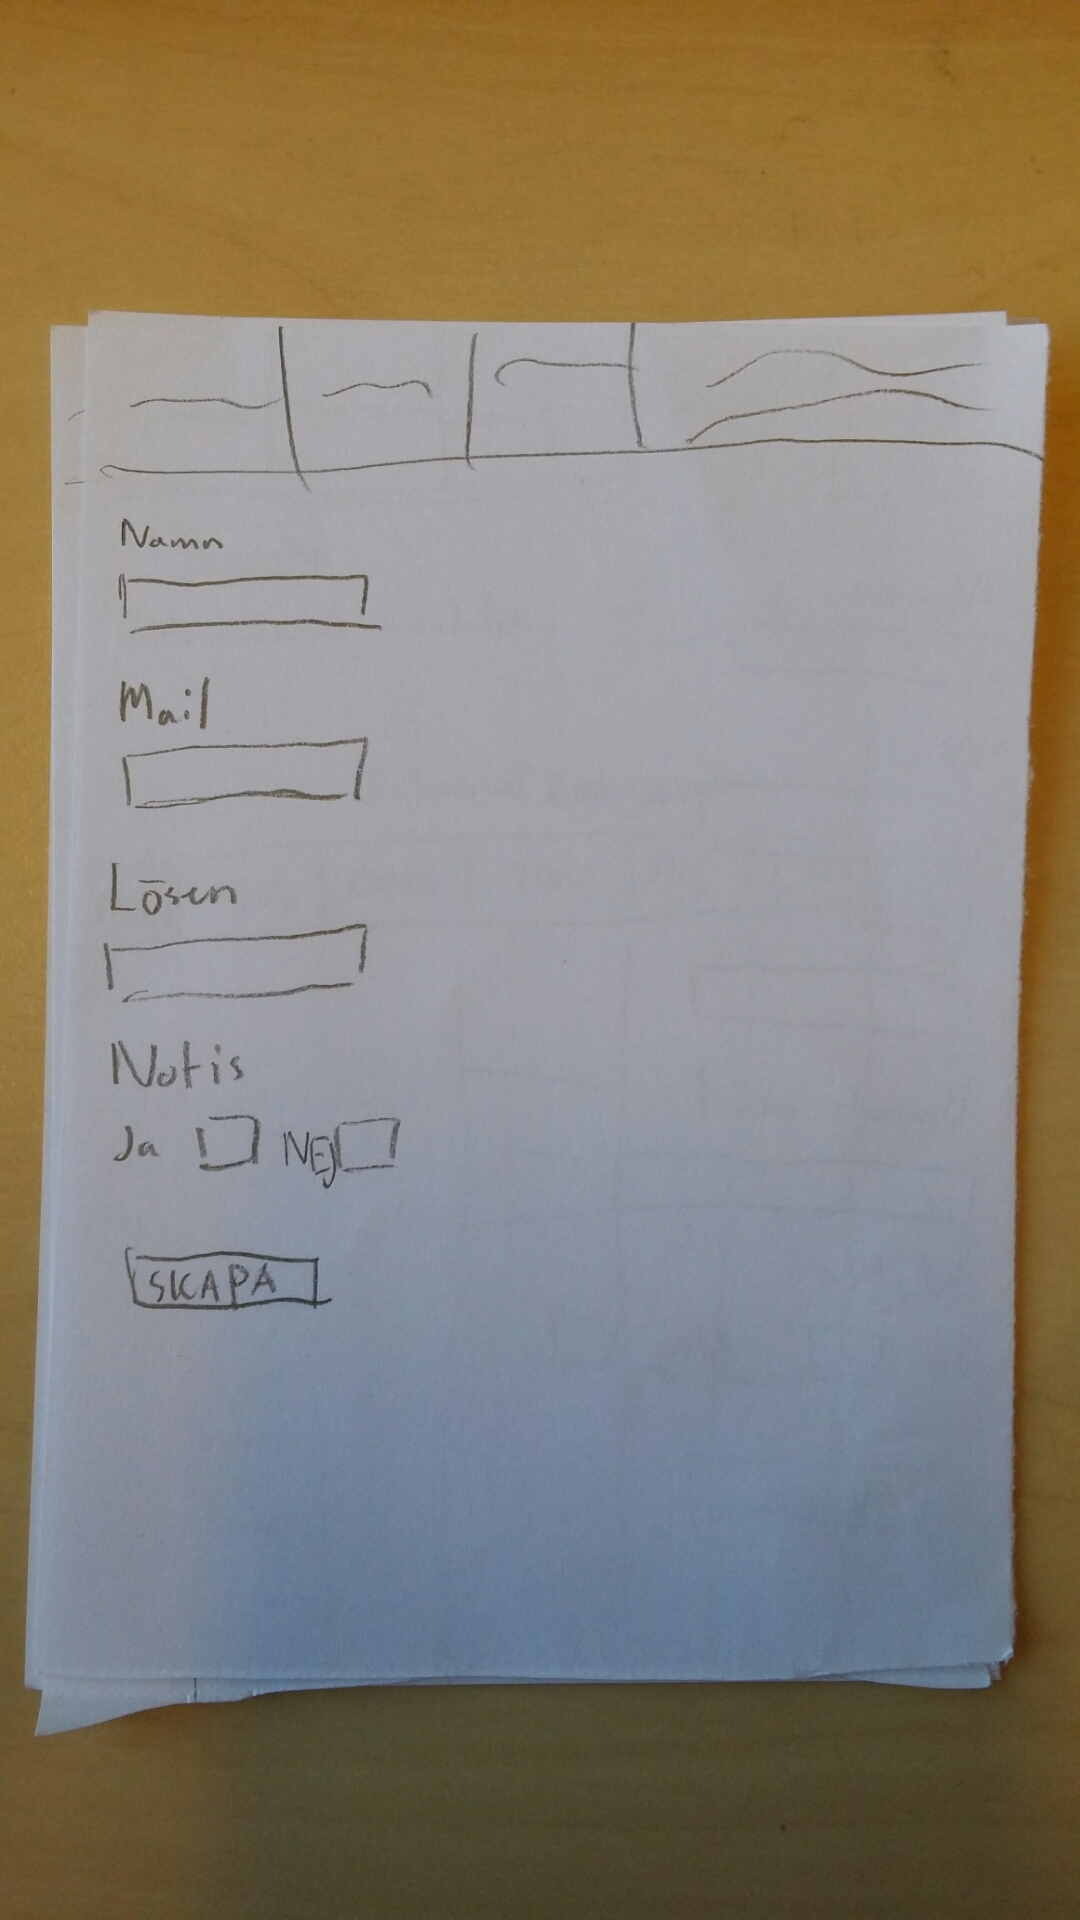 Namn
Mail
Lösen
Notis
Ja NEJ
SKAPA